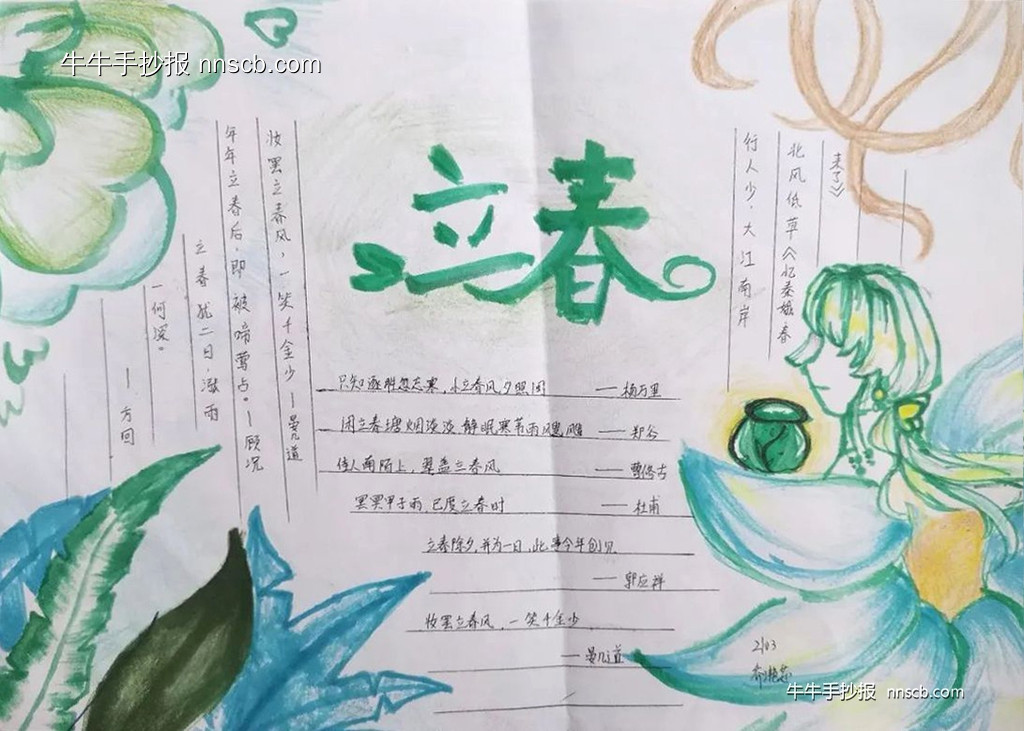 牛牛手抄报 nnscb.com
立春
妆罢立春风，一笑千金少 — 晏几道
年年立春后，即被啼莺占。— 顾况
立春犹二日，
— 方回
来了》
北风低草《忆秦娥春
行人少，大江南岸
立春风夕照
— 杨万里
闭立春塘烟淡淡，静眠寒苇雨飕飕
— 郑谷
佳人南陌上，翠盖立春风
— 曹修古
冥冥甲子雨，已度立春时
— 杜甫
立春除夕并为一日，此事今年创见
— 郭应祥
妆罢立春风，一笑千金少
— 晏几道
牛牛手抄报 nnscb.com